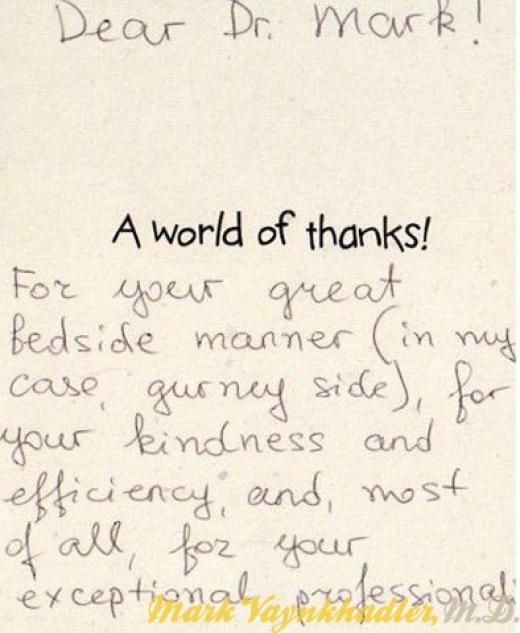 Dear Dr. Mark!
A world of thanks!
For your great
bedside manner (in my
case, gurney side), for
your kindness and
efficiency, and, most
of all, for your
exceptional professional
Mark Vaynkhadler, M.D.